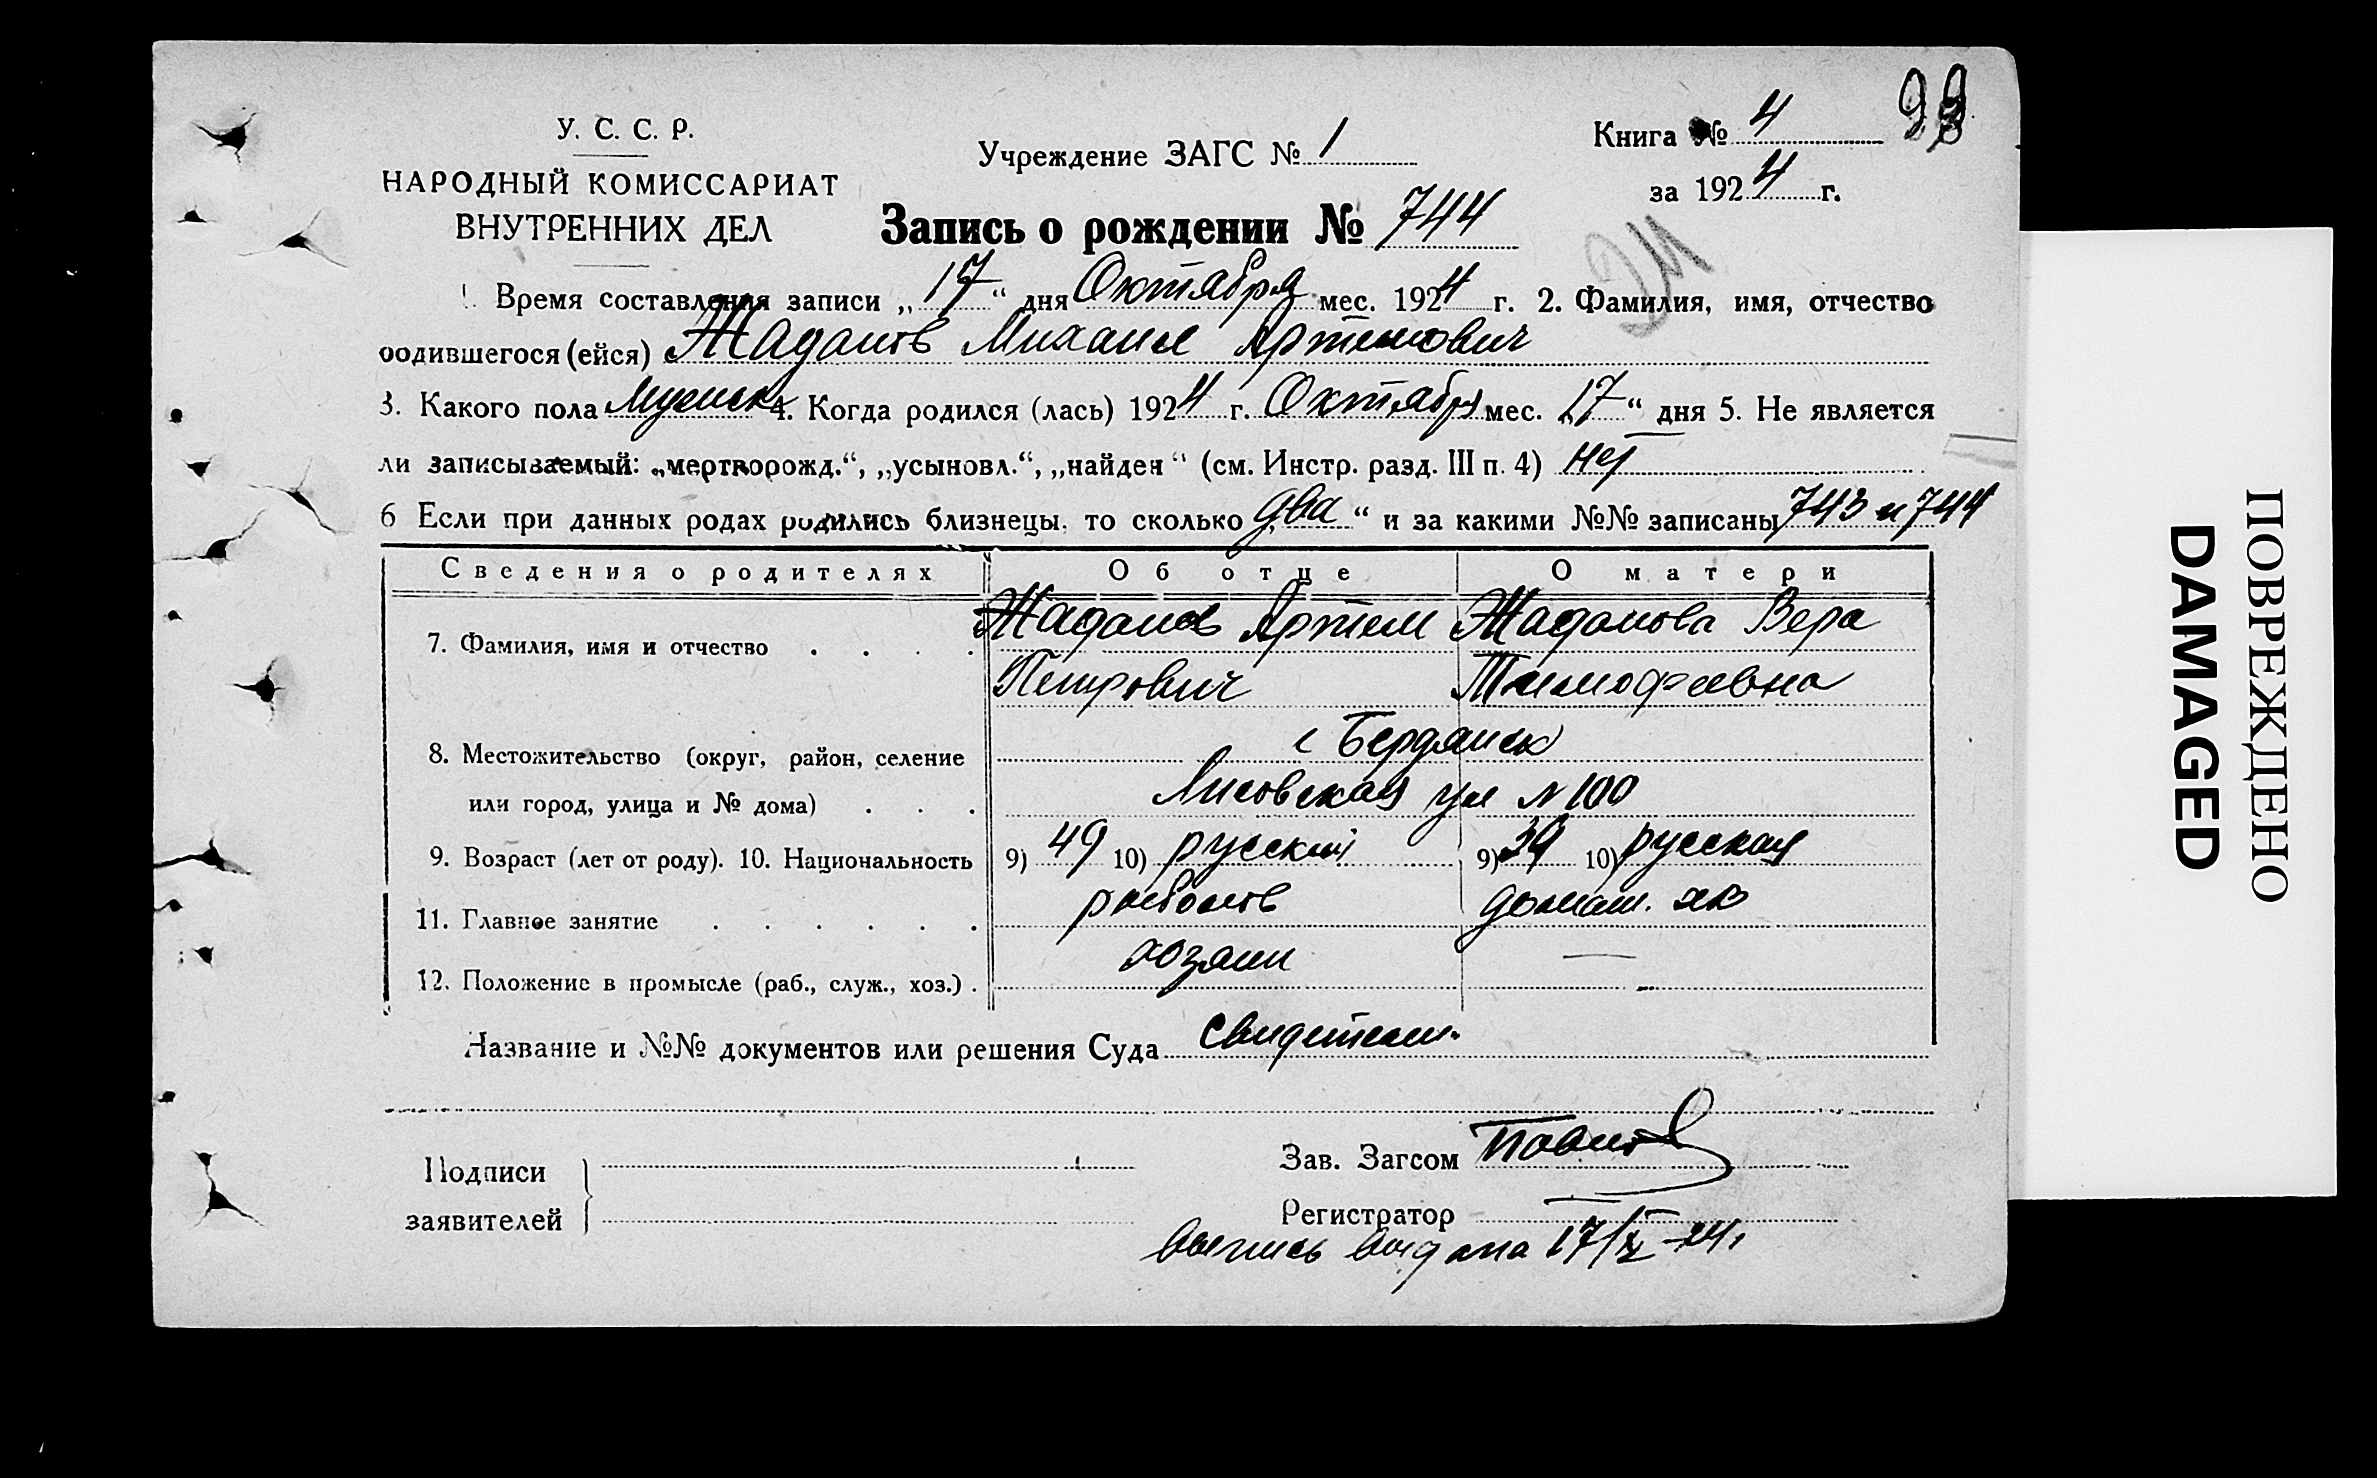 У. С. С. Р.
НАРОДНЫЙ КОМИССАРИАТ
ВНУТРЕННИХ ДЕЛ
Учреждение ЗАГС № 1
Книга № 4
за 1924 г.
Запись о рождении № 744
24
1. Время составления записи „17“ дня Октября мес. 1924 г. 2. Фамилия, имя, отчество
родившегося (ейся) Жаданов Михаил Артемович
3. Какого пола Мужск 4. Когда родился (лась) 1924 г. Октября мес. „17“ дня 5. Не является
ли записываемый: „мертворожд.“, „усыновл.“, „найден“ (см. Инстр. разд. III п. 4) нет
6 Если при данных родах родились близнецы, то сколько „два“ и за какими №№ записаны 743 и 744
Сведения о родителях Об отце О матери
7. Фамилия, имя и отчество . . . . Жаданов Артем Жаданова Вера
Петрович Тимофеевна
8. Местожительство (округ, район, селение г Бердянск
или город, улица и № дома) . . . Лисовская ул № 100
9. Возраст (лет от роду). 10. Национальность 9) 49 10) русский 9) 39 10) русская
11. Главное занятие . . . . . . рыболов домаш. хо
12. Положение в промысле (раб., служ., хоз.) . хозяин —
Название и №№ документов или решения Суда
Подписи
заявителей
Зав. Загсом
Регистратор
выпись выдана 17/X-24.
ПОВРЕЖДЕНО
DAMAGED